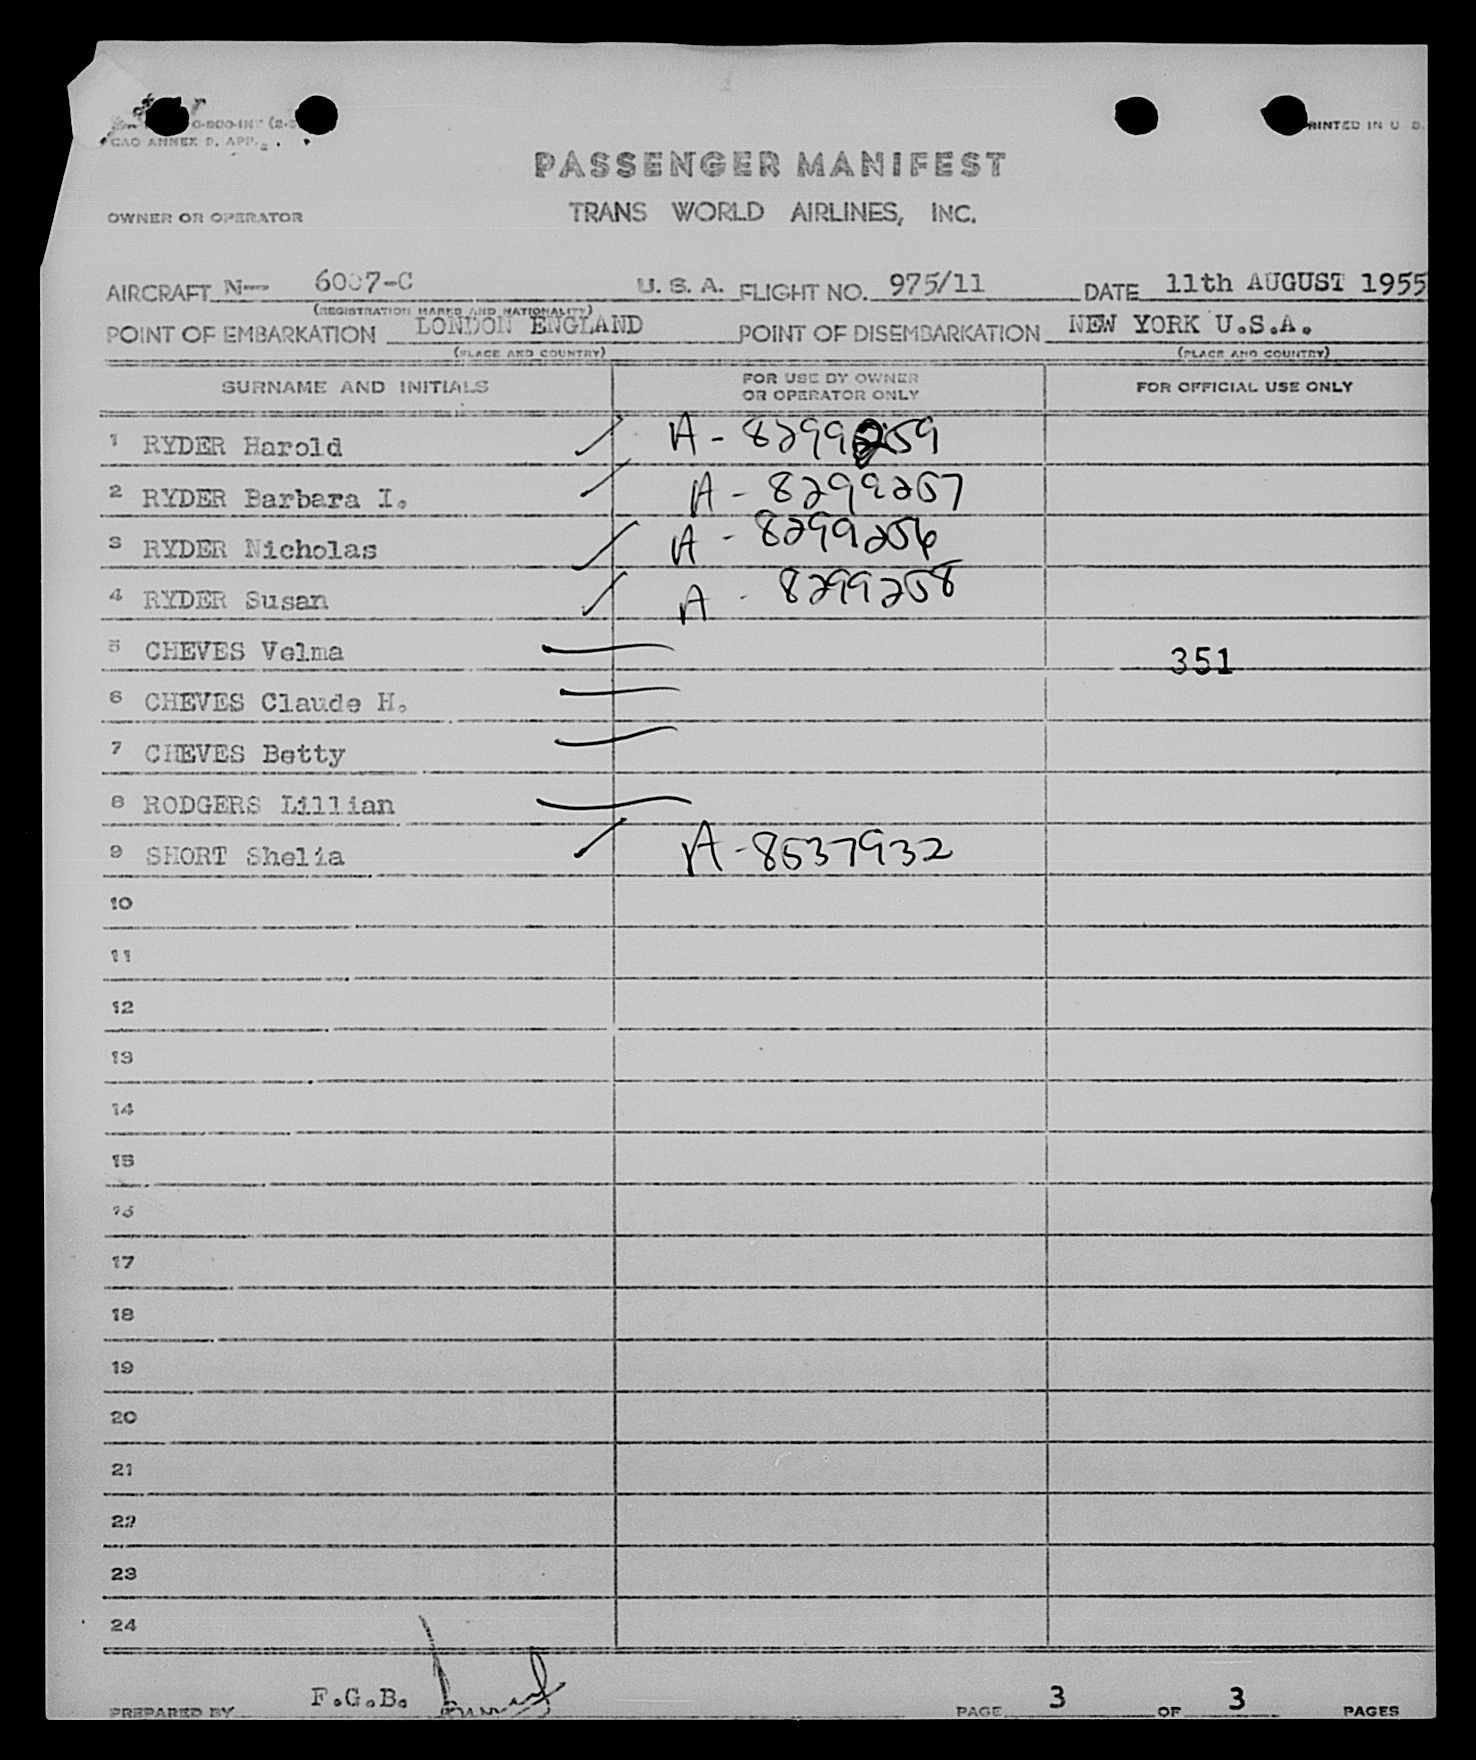 CAO ANNEX 9, APP.
PRINTED IN U S
PASSENGER MANIFEST
OWNER OR OPERATOR TRANS WORLD AIRLINES, INC.
AIRCRAFT N-- 6007-C U. S. A. FLIGHT NO. 975/11 DATE 11th AUGUST 1955
(REGISTRATION MARKS AND NATIONALITY)
POINT OF EMBARKATION LONDON ENGLAND POINT OF DISEMBARKATION NEW YORK U.S.A.
(PLACE AND COUNTRY) (PLACE AND COUNTRY)
SURNAME AND INITIALS FOR USE BY OWNER OR OPERATOR ONLY FOR OFFICIAL USE ONLY
1 RYDER Harold A - 8299259
2 RYDER Barbara I. A - 8299257
3 RYDER Nicholas A - 8299256
4 RYDER Susan A - 8299258
5 CHEVES Velma 351
6 CHEVES Claude H.
7 CHEVES Betty
8 RODGERS Lillian
9 SHORT Shelia A-8537932
10
11
12
13
14
15
16
17
18
19
20
21
22
23
24
PREPARED BY F.G.B. PAGE 3 OF 3 PAGES